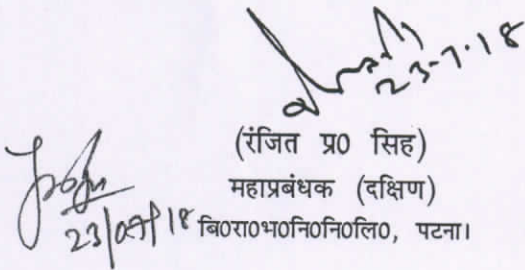 23-7-18
(रंजित प्र0 सिह)
महाप्रबंधक (दक्षिण)
23/07/18 बि0रा0भ0नि0नि0लि0, पटना।